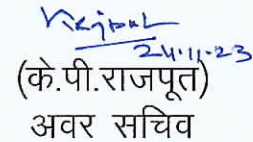 24.11.23
(के.पी.राजपूत)
अवर सचिव